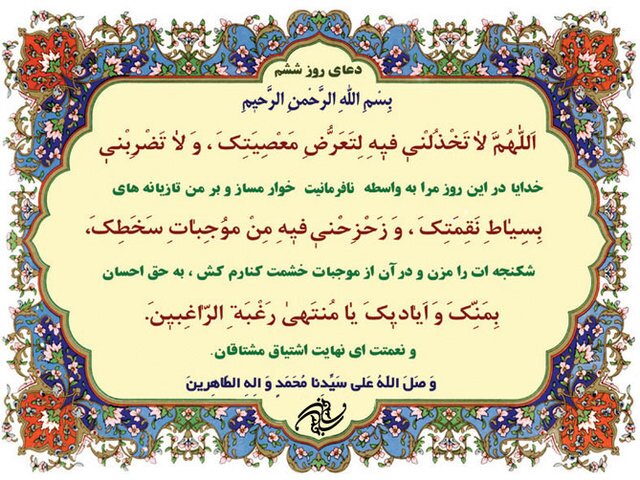 دعای روز ششم
بِسْمِ اللهِ الرَّحْمنِ الرَّحیمِ
اَللّهُمَّ لاٰ تَخْذُلْنیٖ فیٖهِ لِتَعَرُّضِ مَعْصِیَتِکَ ، وَ لاٰ تَضْرِبْنیٖ
خدایا در این روز مرا به واسطه نافرمانیت خوار مساز و بر من تازیانه های
بِسِیٰاطِ نَقِمَتِکَ ، وَ زَحْزِحْنیٖ فیٖهِ مِنْ مُوُجِبٰاتِ سَخَطِکَ،
شکنجه ات را مزن و در آن از موجبات خشمت کنارم کش ، به حق احسان
بِمَنِّکَ وَ اَیٰادیٖکَ یٰا مُنْتَهیٰ رَغْبَةِ الرّٰاغِبیٖنَ.
و نعمتت ای نهایت اشتیاق مشتاقان.
وَ صَلَ اللهُ عَلی سَیِّدِنا مُحَمَدٍ وَ الِهِ الطّاهِرین